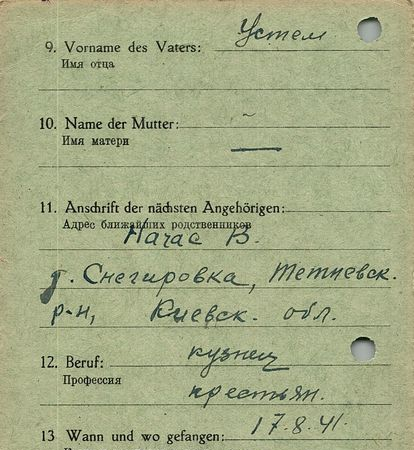 9. Vorname des Vaters: Устем
Имя отца
10. Name der Mutter: —
Имя матери
11. Anschrift der nächsten Angehörigen:
Адрес ближайших родственников
В.
д. Снегировка, Тетиевск.
р-н, Киевск. обл.
12. Beruf: кузнец
Профессия
крестьян.
17.8.41.
13 Wann und wo gefangen: